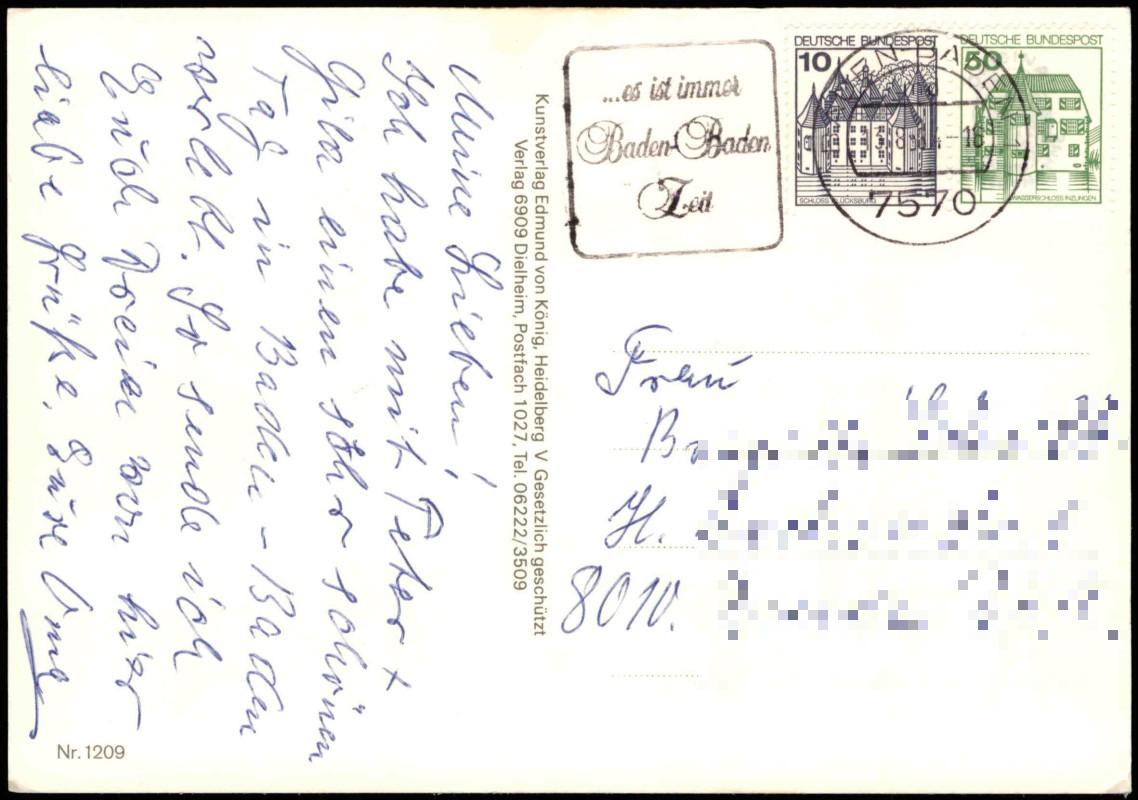 Meine Lieben!
Ich habe mit Peter +
Gila einen sehr schönen
Tag in Baden-Baden
verlebt. So sende ich
Euch Dreien von hier
liebe Grüße, Eure Oma
Nr. 1209
Kunstverlag Edmund von König, Heidelberg V Gesetzlich geschützt
Verlag 6909 Dielheim, Postfach 1027, Tel. 06222/3509
...es ist immer
Baden-Baden
Zeit
DEUTSCHE BUNDESPOST
10
SCHLOSS GLÜCKSBURG
DEUTSCHE BUNDESPOST
50
WASSERSCHLOSS INZLINGEN
BADEN-BADEN
7570
Frau
H.
8010